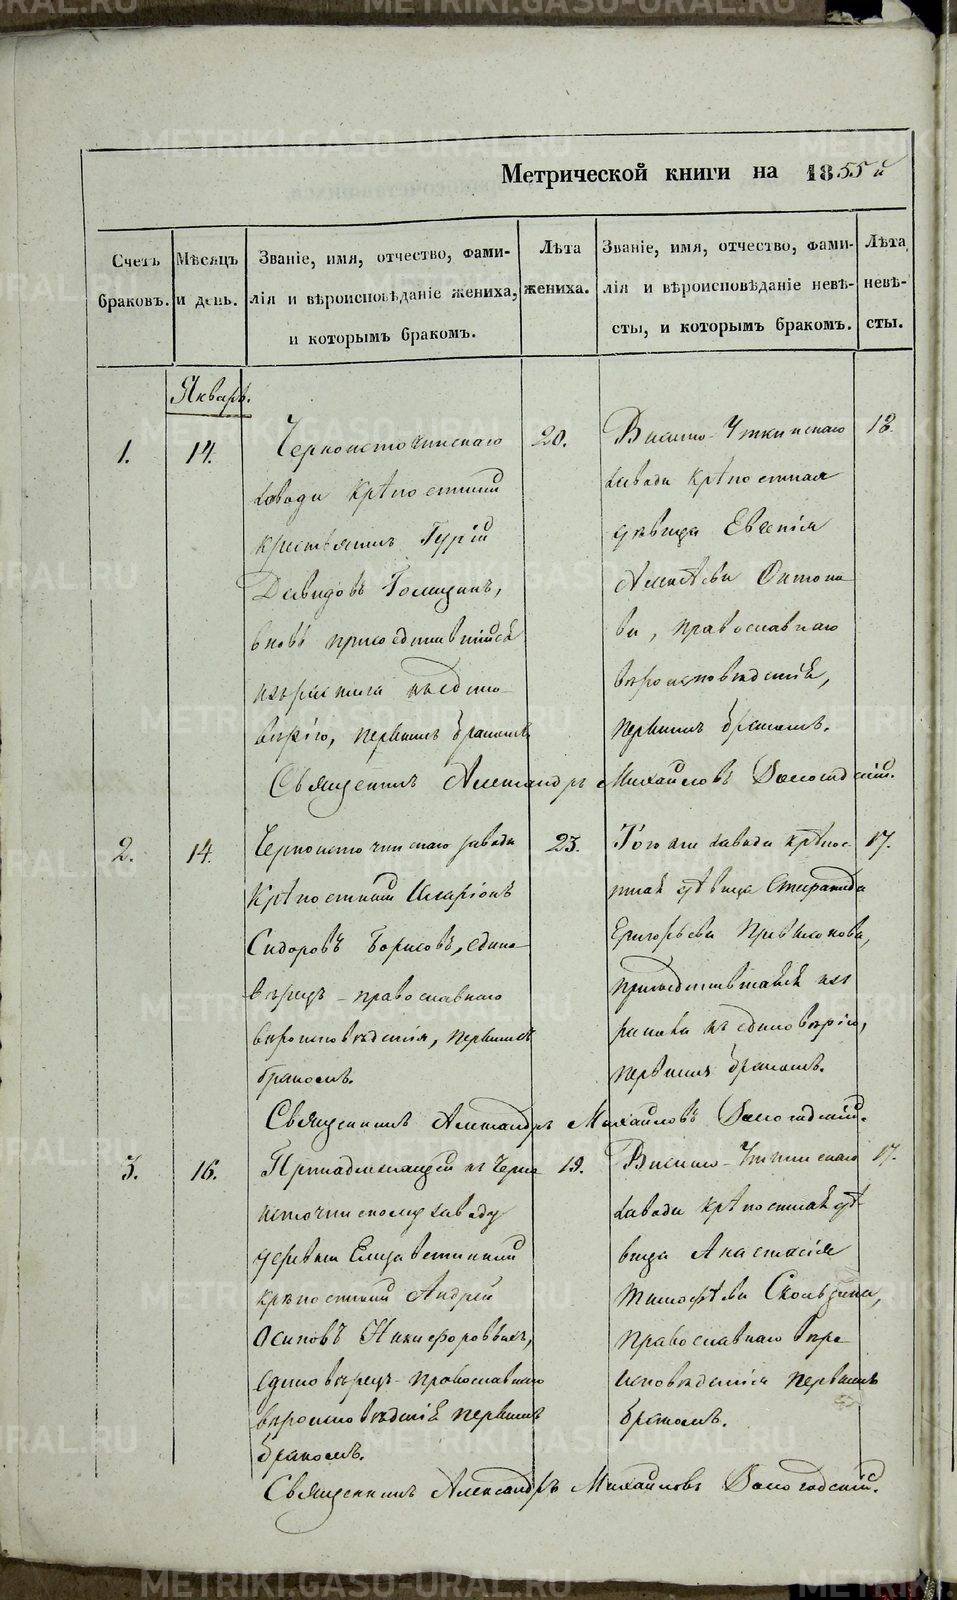 METRIKI.GASO-URAL.RU
Метрической книги на 1855й
Счетъ браковъ.
Мѣсяцъ и день.
Званіе, имя, отчество, фами-
лія и вѣроисповѣданіе жениха,
и которымъ бракомъ.
Лѣта
жениха.
Званіе, имя, отчество, фами-
лія и вѣроисповѣданіе невѣ-
сты, и которымъ бракомъ.
Лѣта
невѣ-
сты.
Январь.
1.
14.
Черноисточинскаго
завода крѣпостный
крестьянинъ Гурій
Давидовъ Голицинъ,
вновь присоединившійся
изъ раскола къ едино-
вѣрію, первымъ бракомъ
20.
Висимо-Уткинскаго
завода крѣпостная
дѣвица Евгенія
Алексѣева
ва, православнаго
вѣроисповѣданія,
первымъ бракомъ.
18.
Священникъ Александръ Михайловъ
2.
14.
Черноисточинскаго завода
крѣпостный Иларіонъ
Сидоровъ Борисовъ, едино-
вѣрецъ - православнаго
вѣроисповѣданія, первымъ
бракомъ.
23.
Того же завода крѣпос-
тная дѣвица Стефанида
Григорьева
присоединившаяся изъ
раскола къ единовѣрію,
первымъ бракомъ.
17.
Священникъ Александръ Михайловъ
3.
16.
Принадлежащей къ Черно
источинскому заводу
деревни Елизаветинской
крѣпостный Андрей
Осиповъ Никифоровыхъ,
единовѣрецъ - православнаго
вѣроисповѣданія первымъ
бракомъ.
19.
Висимо-Уткинскаго
завода крѣпостная дѣ-
вица Анастасія
Тимофѣева
православнаго вѣро
исповѣданія первымъ
бракомъ.
17.
Священникъ Александръ Михайловъ